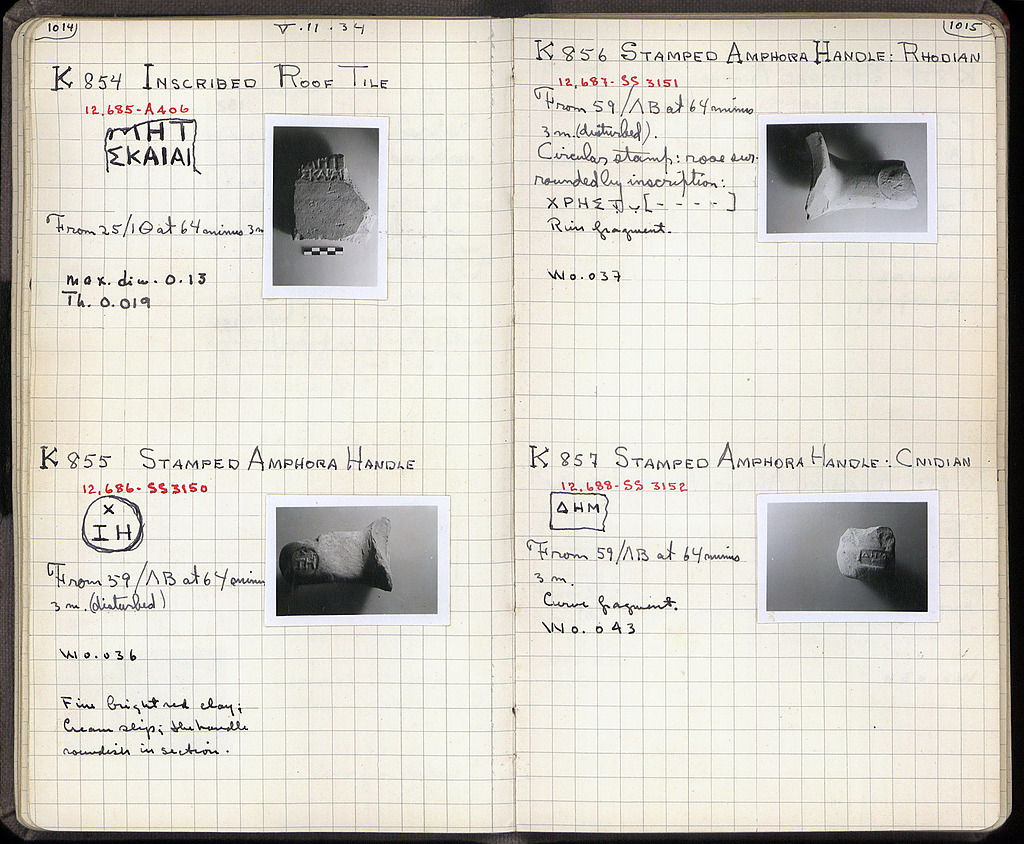 1014
V·11·34
K 854 INSCRIBED ROOF TILE
12,685-A406
ΜΗΤ
ΣΚΑΙΑΙ
From 25/ΙΘ at 64 minus 3m
max. dim. 0.13
Th. 0.019
K 855 STAMPED AMPHORA HANDLE
12,686-SS3150
X
ΙΗ
From 59/ΛΒ at 64 minus
3 m. (disturbed)
W 0.036
Fine bright red clay;
Cream slip; the handle
roundish in section.
1015
K 856 STAMPED AMPHORA HANDLE: RHODIAN
12,687-SS 3151
From 59/ΛΒ at 64 minus
3 m. (disturbed).
Circular stamp: rose sur-
rounded by inscription:
[- - - -]
Rim fragment.
W 0.037
K 857 STAMPED AMPHORA HANDLE: CNIDIAN
12,688-SS 3152
ΔΗΜ
From 59/ΛΒ at 64 minus
3 m.
Curve fragment.
W 0.043